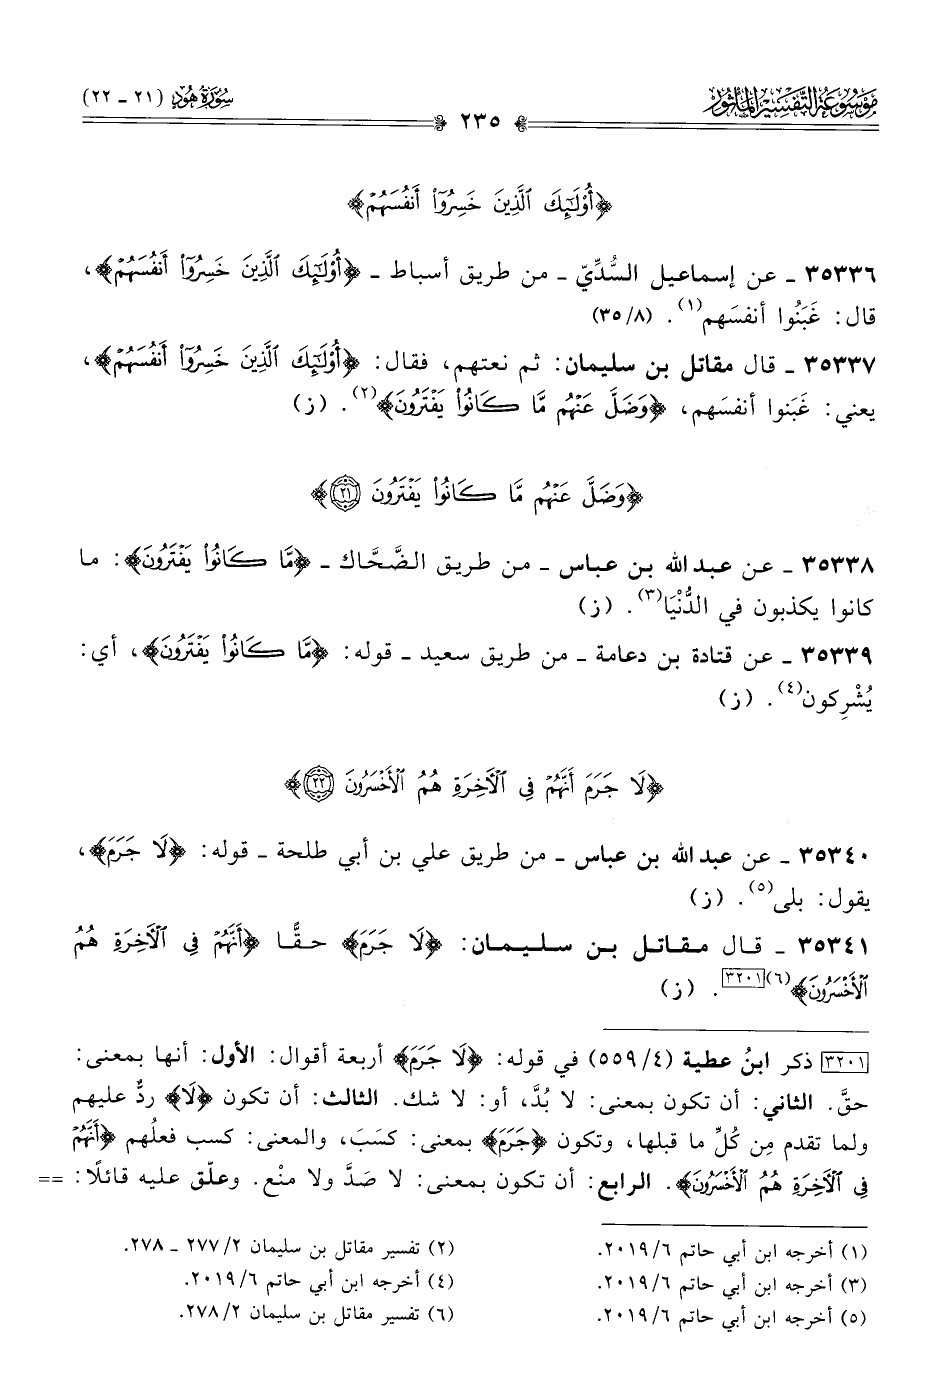 مَوْسُوعَة التَّفْسِير المَأْثُور
سُورَةُ هُود (٢١ - ٢٢)
٢٣٥
﴿أُوْلَٰٓئِكَ ٱلَّذِينَ خَسِرُوٓاْ أَنفُسَهُمۡ﴾
٣٥٣٣٦ ـ عن إسماعيل السُّدِّيّ ـ من طريق أسباط ـ ﴿أُوْلَٰٓئِكَ ٱلَّذِينَ خَسِرُوٓاْ أَنفُسَهُمۡ﴾،
قال: غَبَنُوا أنفسَهم(١). (٣٥/٨)
٣٥٣٣٧ ـ قال مقاتل بن سليمان: ثم نعتهم، فقال: ﴿أُوْلَٰٓئِكَ ٱلَّذِينَ خَسِرُوٓاْ أَنفُسَهُمۡ﴾،
يعني: غَبَنوا أنفسَهم، ﴿وَضَلَّ عَنۡهُم مَّا كَانُواْ يَفۡتَرُونَ﴾(٢). (ز)
﴿وَضَلَّ عَنۡهُم مَّا كَانُواْ يَفۡتَرُونَ ٢١﴾
٣٥٣٣٨ ـ عن عبد الله بن عباس ـ من طريق الضَّحَّاك ـ ﴿مَّا كَانُواْ يَفۡتَرُونَ﴾: ما
كانوا يكذبون في الدُّنْيَا(٣). (ز)
٣٥٣٣٩ ـ عن قتادة بن دعامة ـ من طريق سعيد ـ قوله: ﴿مَّا كَانُواْ يَفۡتَرُونَ﴾، أي:
يُشْرِكون(٤). (ز)
﴿لَا جَرَمَ أَنَّهُمۡ فِي ٱلۡأٓخِرَةِ هُمُ ٱلۡأَخۡسَرُونَ ٢٢﴾
٣٥٣٤٠ ـ عن عبد الله بن عباس ـ من طريق علي بن أبي طلحة ـ قوله: ﴿لَا جَرَمَ﴾،
يقول: بلى(٥). (ز)
٣٥٣٤١ ـ قال مقاتل بن سليمان: ﴿لَا جَرَمَ﴾ حقًّا ﴿أَنَّهُمۡ فِي ٱلۡأٓخِرَةِ هُمُ
ٱلۡأَخۡسَرُونَ﴾(٦)[٣٢٠١]. (ز)
[٣٢٠١] ذكر ابنُ عطية (٥٥٩/٤) في قوله: ﴿لَا جَرَمَ﴾ أربعة أقوال: الأول: أنها بمعنى:
حقَّ. الثاني: أن تكون بمعنى: لا بُدَّ، أو: لا شك. الثالث: أن تكون ﴿لَا﴾ ردٌّ عليهم
ولما تقدم مِن كُلِّ ما قبلها، وتكون ﴿جَرَمَ﴾ بمعنى: كسَبَ، والمعنى: كسب فعلُهم ﴿أَنَّهُمۡ
فِي ٱلۡأٓخِرَةِ هُمُ ٱلۡأَخۡسَرُونَ﴾. الرابع: أن تكون بمعنى: لا صَدَّ ولا منْع. وعلّق عليه قائلًا: ==
(١) أخرجه ابن أبي حاتم ٢٠١٩/٦.
(٢) تفسير مقاتل بن سليمان ٢٧٧/٢ ـ ٢٧٨.
(٣) أخرجه ابن أبي حاتم ٢٠١٩/٦.
(٤) أخرجه ابن أبي حاتم ٢٠١٩/٦.
(٥) أخرجه ابن أبي حاتم ٢٠١٩/٦.
(٦) تفسير مقاتل بن سليمان ٢٧٨/٢.